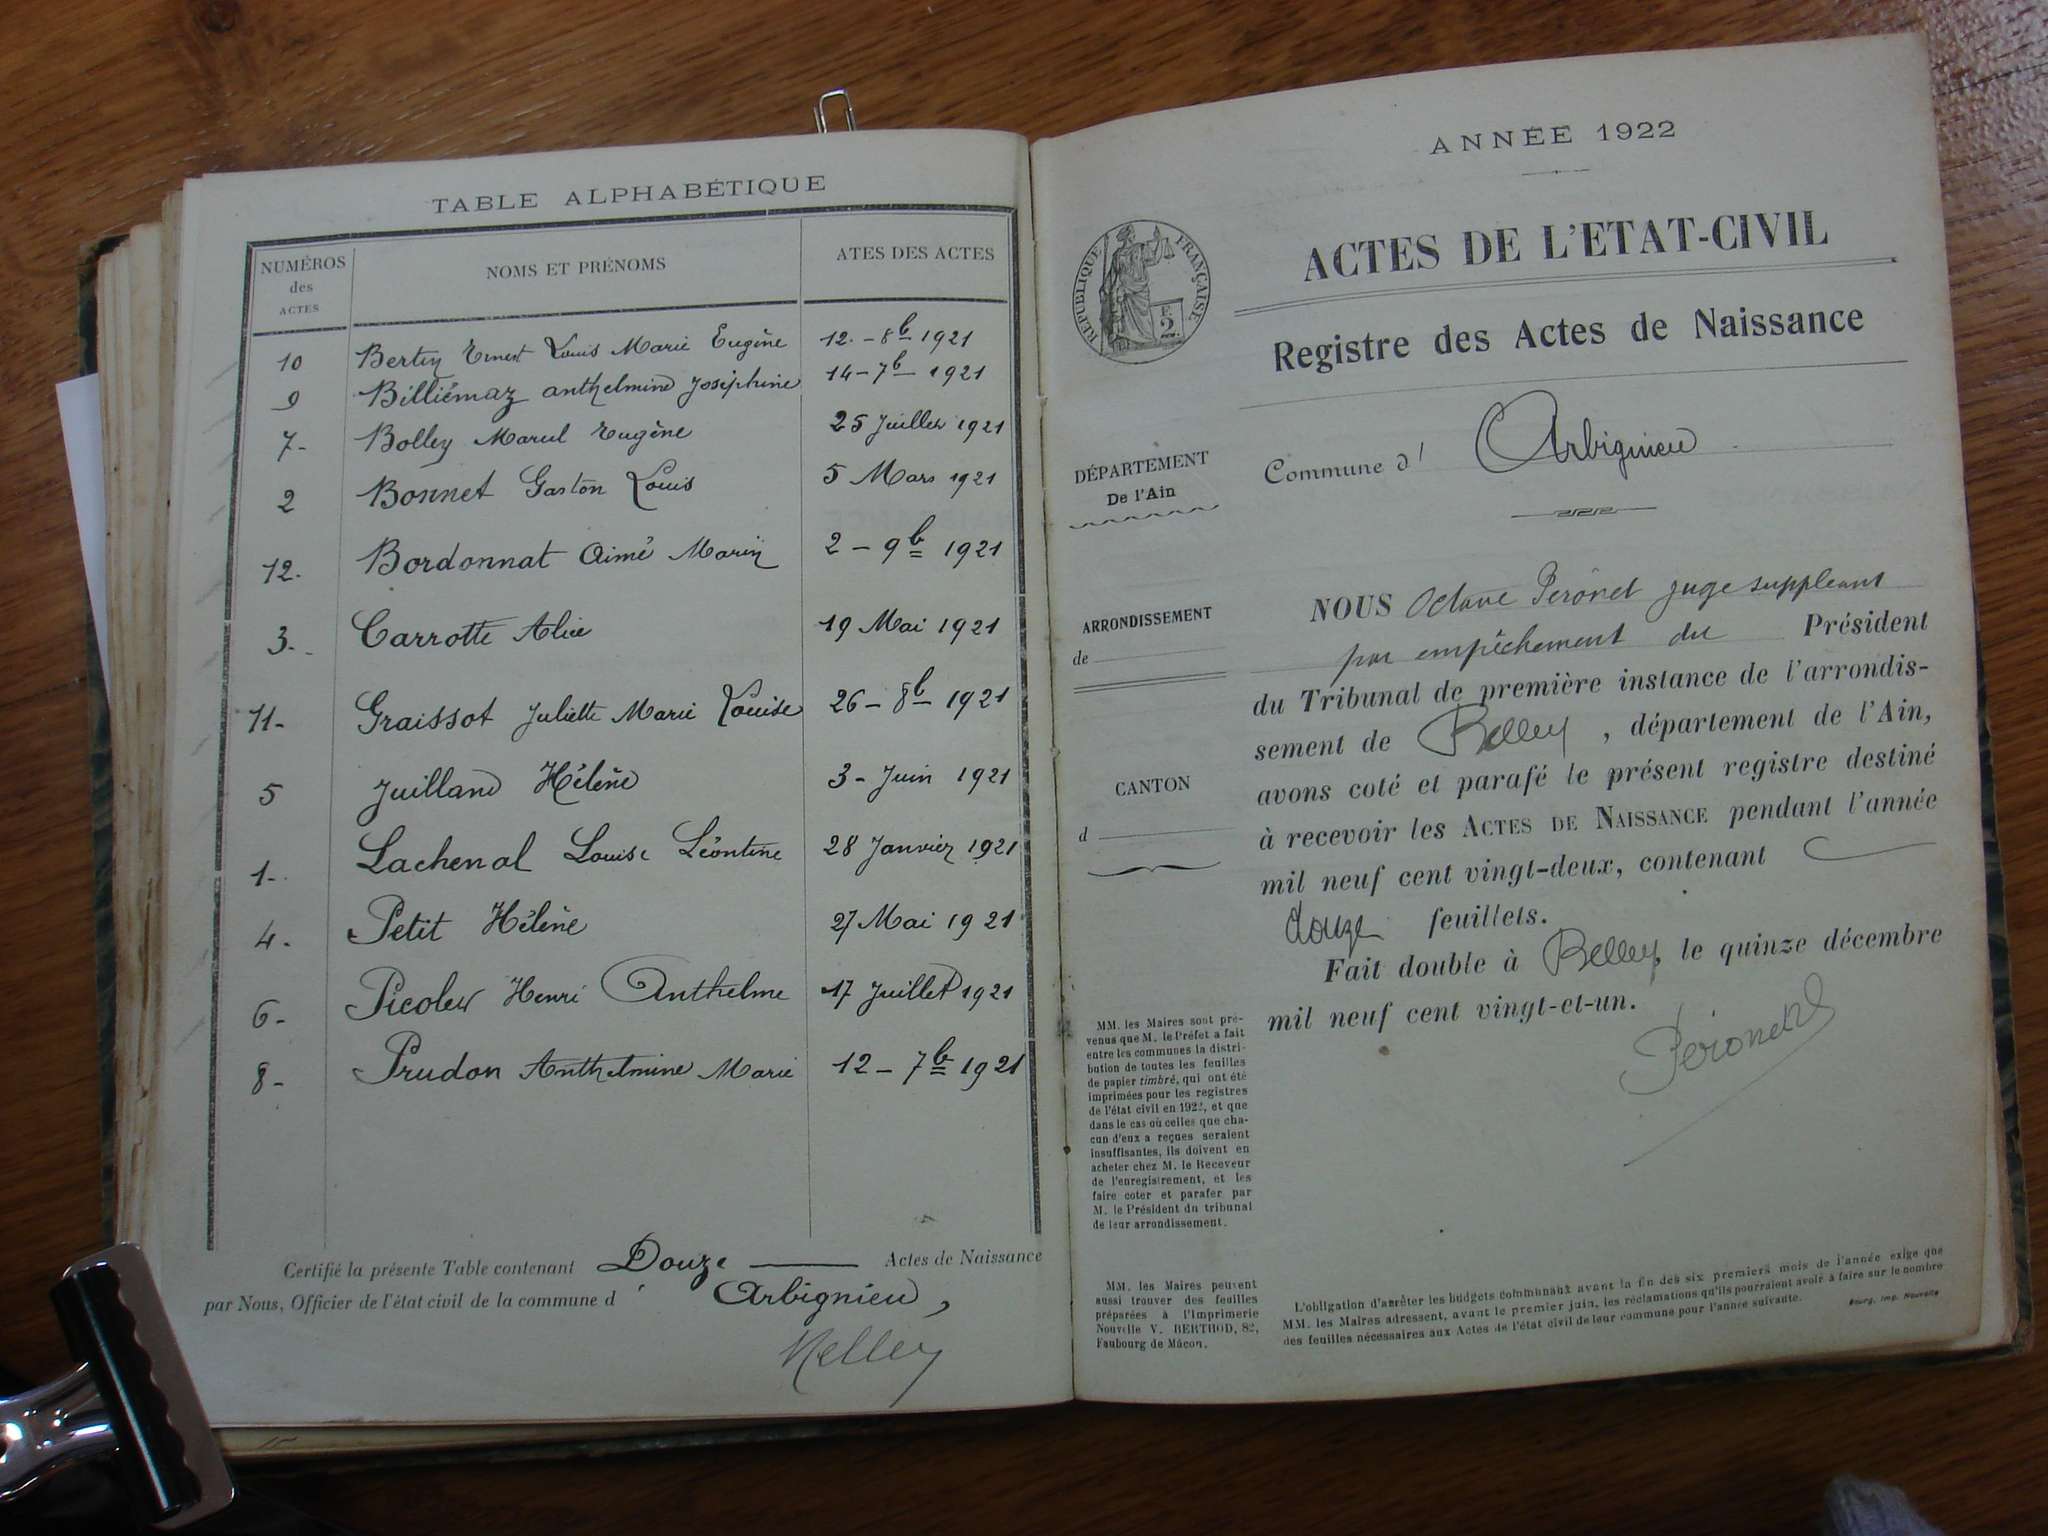 TABLE ALPHABÉTIQUE
NUMÉROS des ACTES NOMS ET PRÉNOMS ATES DES ACTES
10 Bertin Ernest Louis Marie Eugène 12 - 8b 1921
9 Billiémaz Anthelmine Joséphine 14 - 7b 1921
7 - Bolley Marcel Eugène 25 Juillet 1921
2 Bonnet Gaston Louis 5 Mars 1921
12. Bordonnat Aimé Marin 2 - 9b 1921
3 - Carrotte Alice 19 Mai 1921
11 - Graissot Juliette Marie Louise 26 - 8b 1921
5 Juilland Hélène 3 - Juin 1921
1 - Lachenal Louise Léontine 28 Janvier 1921
4 - Petit Hélène 27 Mai 1921
6 - Picolet Henri Anthelme 17 Juillet 1921
8 - Prudon Anthelmine Marie 12 - 7b 1921
Certifié la présente Table contenant Douze Actes de Naissance
par Nous, Officier de l'état civil de la commune d' Arbignieu,
ANNÉE 1922
RÉPUBLIQUE FRANÇAISE
2
ACTES DE L'ETAT-CIVIL
Registre des Actes de Naissance
DÉPARTEMENT
De l'Ain
Commune d' Arbignieu
ARRONDISSEMENT
de
CANTON
d
NOUS Octave Peronet juge suppléant
par empêchement du Président
du Tribunal de première instance de l'arrondis-
sement de Belley, département de l'Ain,
avons coté et parafé le présent registre destiné
à recevoir les ACTES DE NAISSANCE pendant l'année
mil neuf cent vingt-deux, contenant
douze feuillets.
Fait double à Belley, le quinze décembre
mil neuf cent vingt-et-un.
Peronet
MM. les Maires sont pré-
venus que M. le Préfet a fait
entre les communes la distri-
bution de toutes les feuilles
de papier timbré, qui ont été
imprimées pour les registres
de l'état civil en 1922, et que
dans le cas où celles que cha-
cun d'eux a reçues seraient
insuffisantes, ils doivent en
acheter chez M. le Receveur
de l'enregistrement, et les
faire coter et parafer par
M. le Président du tribunal
de leur arrondissement.
MM. les Maires peuvent
aussi trouver des feuilles
préparées à l'Imprimerie
Nouvelle V. BERTHOD, 82,
Faubourg de Mâcon.
L'obligation d'arrêter les budgets communaux avant la fin des six premiers mois de l'année exige que
MM. les Maires adressent, avant le premier juin, les réclamations qu'ils pourraient avoir à faire sur le nombre
des feuilles nécessaires aux Actes de l'état civil de leur commune pour l'année suivante.
Bourg, Imp. Nouvelle